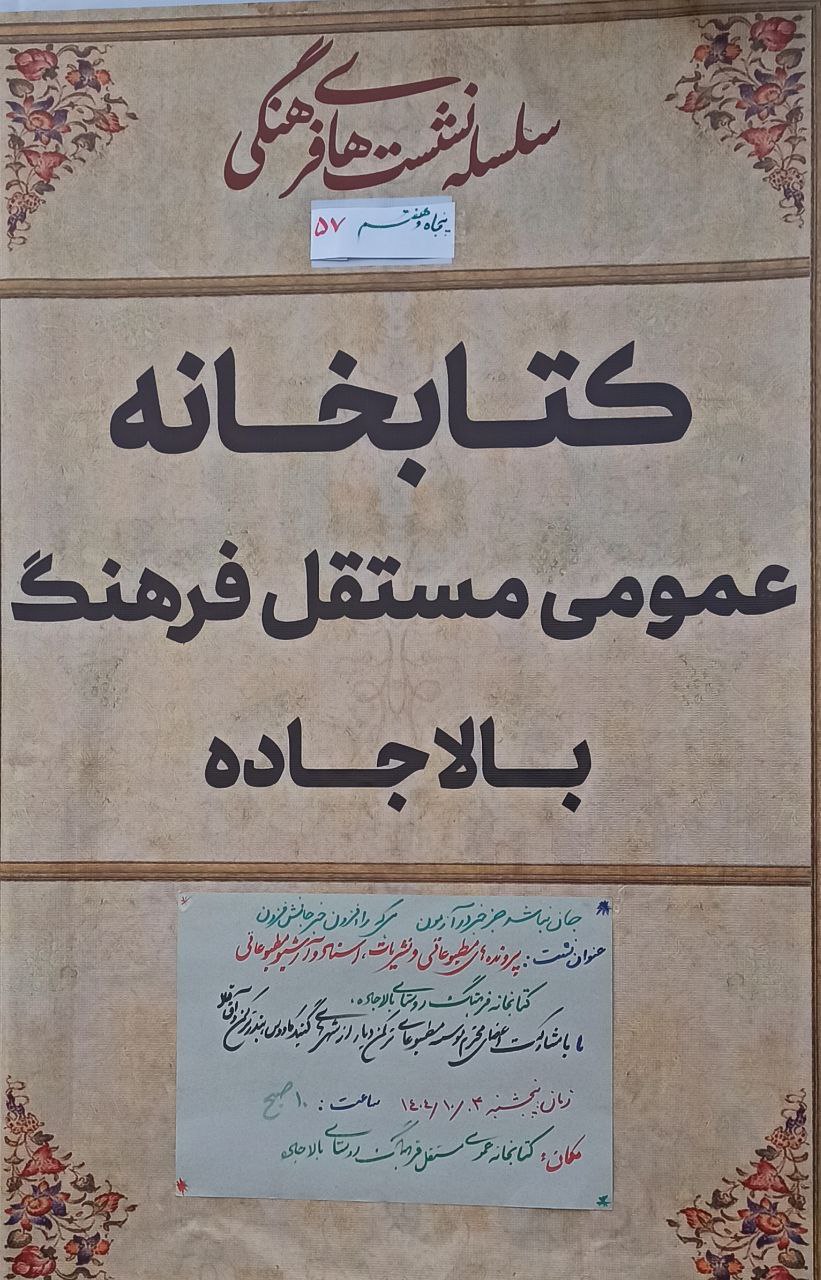 سلسله نشست های فرهنگی
پنجاه و هفتم ۵۷
کتابخانه
عمومی مستقل فرهنگ
بالاجاده
جان نباشد جز خبر در آزمون هرکه را افزون خبر جانش فزون
عنوان نشست: پرونده های مطبوعاتی و نشریات، اسناد و آرشیو مطبوعاتی
کتابخانه فرهنگ روستای بالاجاده.
با مشارکت اعضای محترم موسسه مطبوعاتی ترکمن دیار از شهرهای گنبدکاووس، بندرترکمن و آق قلا
زمان: پنجشنبه ۱۴۰۴/۱۰/۰۴ ساعت: ۱۰ صبح
مکان: کتابخانه عمومی مستقل فرهنگ روستای بالاجاده